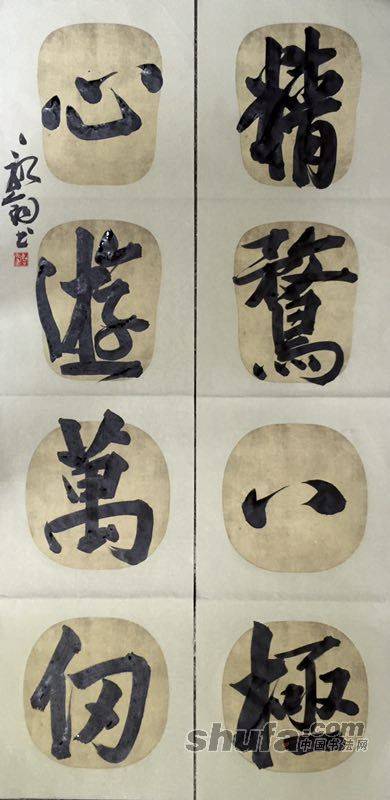 精騖八極
心遊萬仞
shufa.com
中国书法网